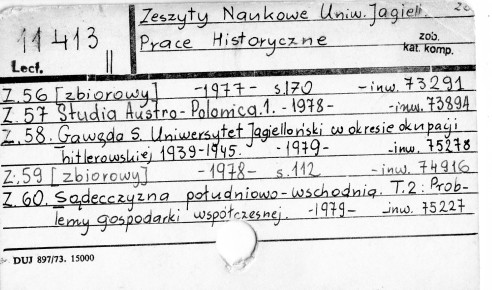 Zeszyty Naukowe Uniw. Jagiell.
11413 II Prace Historyczne zob.
Lect. kat. komp.
Z. 56 [zbiorowy] -1977- s. 170 - inw. 73291
Z. 57 Studia Austro-Polonica. 1. -1978- - inw. 73894
Z. 58. Gawęda S. Uniwersytet Jagielloński w okresie okupacji
hitlerowskiej 1939-1945. -1979- - inw. 75278
Z. 59 [zbiorowy] -1978- s. 112 - inw. 74916
Z. 60. Sądecczyzna południowo-wschodnia. T. 2: Prob-
lemy gospodarki współczesnej. -1979- inw. 75227
DUJ 897/73. 15000